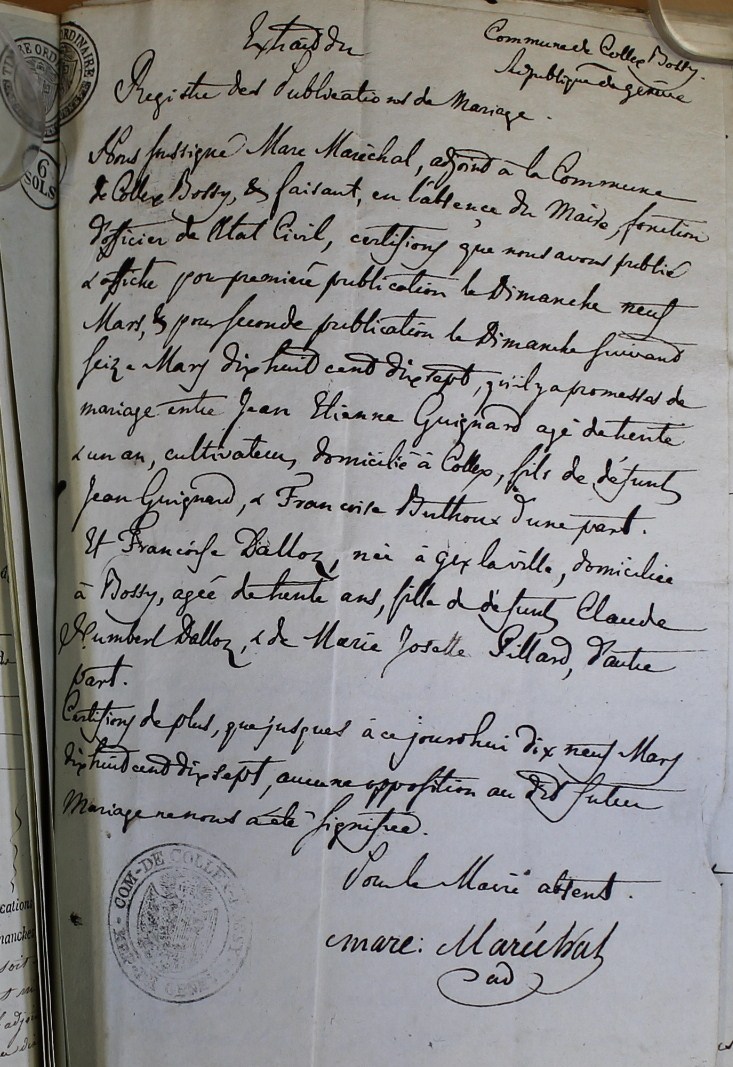 Extrait du
Commune de Collex Bossy.
République de genève
Registre des Publications de Mariage.
TIMBRE ORDINAIRE
6
SOLS
Nous soussigné Marc Maréchal, adjoint à la Commune
de Collex Bossy, & faisant, en l'absence du Maire, fonction
d'officier de l'Etat Civil, certifions que nous avons publié
& affiché pour première publication le Dimanche neuf
Mars, & pour seconde publication le Dimanche suivant
seize Mars dix huit cent dix sept, qu'il y a promesses de
mariage entre Jean Etienne Guignard agé de trente
& un an, cultivateur, domicilié à Collex, fils de défunts
Jean Guignard, & Francoise Duthoux d'une part.
Et Francoise Dalloz, née à gex la ville, domiciliée
à Bossy, agée de trente ans, fille de défunts Claude
Humbert Dalloz, & de Marie Josette Pillard, d'autre
part.
Certifions de plus, que jusques à ce jourdhui dix neuf Mars
dix huit cent dix sept, aucune opposition au dit futur
Mariage ne nous a été signifiée.
Pour le Maire absent.
marc: Maréchal
ad
COM. DE COLLEX-BOSSY